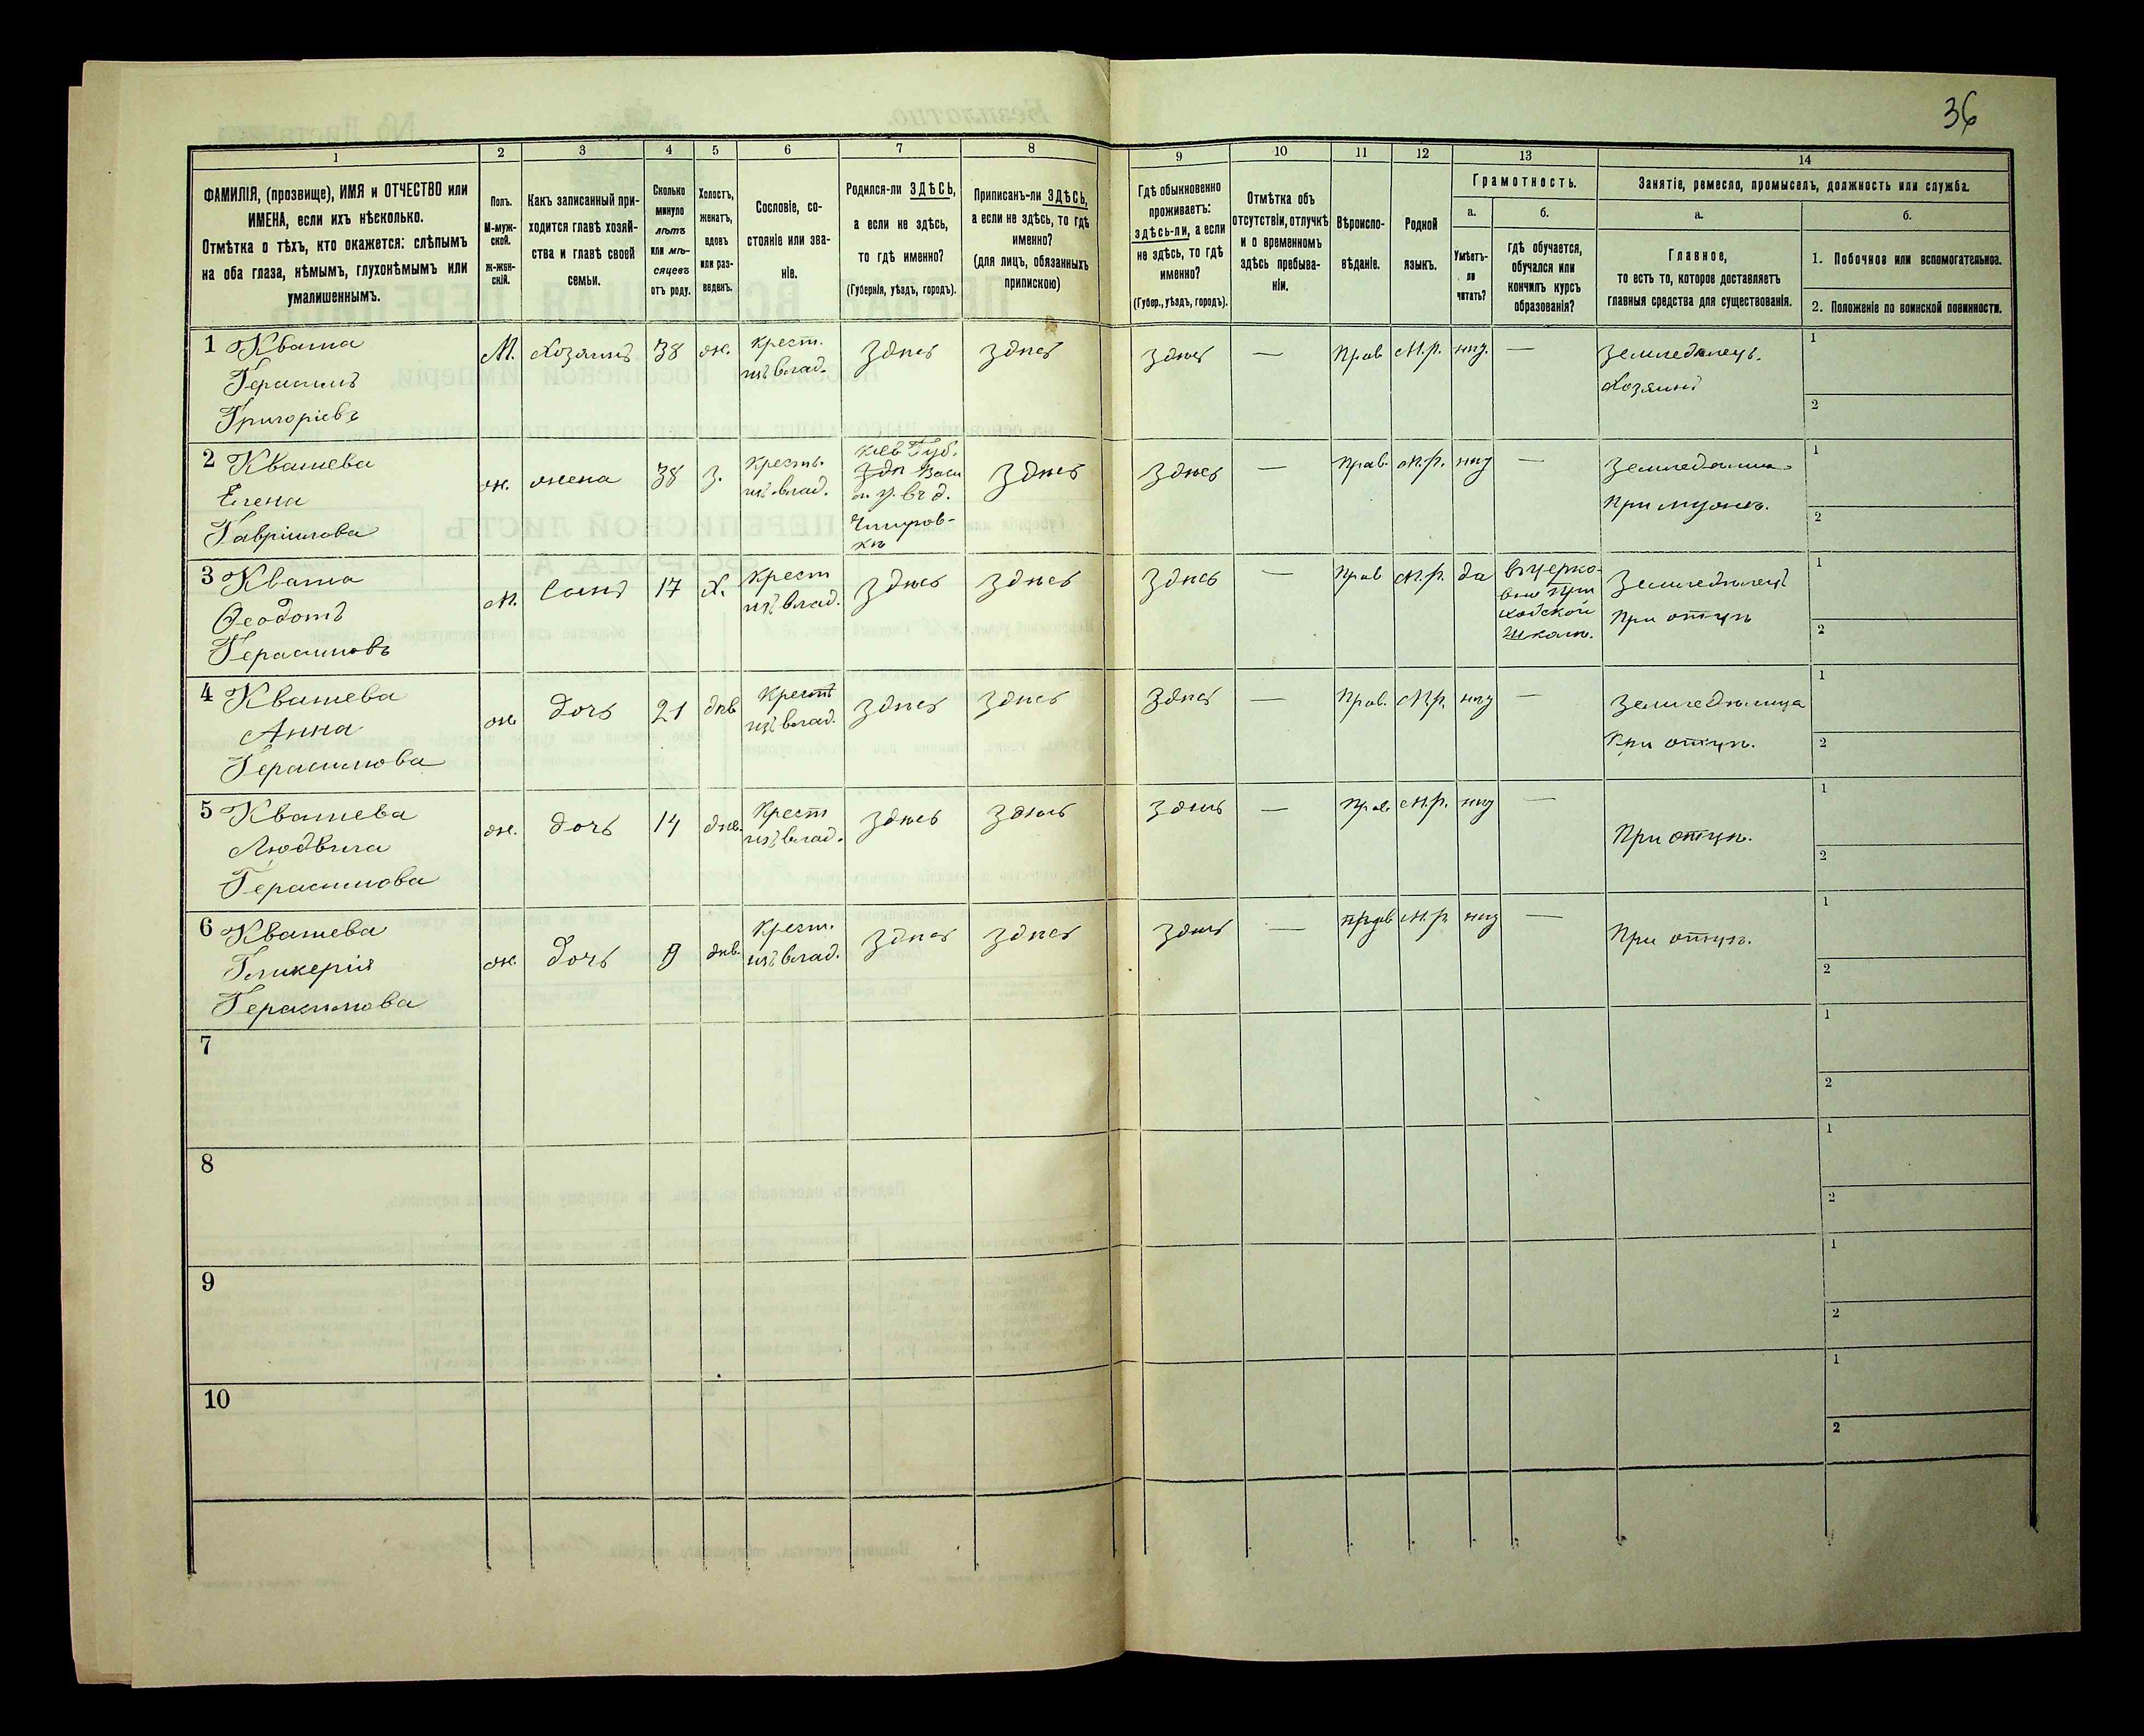 36
1 2 3 4 5 6 7 8 9 10 11 12 13 14
ФАМИЛІЯ, (прозвище), ИМЯ и ОТЧЕСТВО или
ИМЕНА, если ихъ нѣсколько.
Отмѣтка о тѣхъ, кто окажется: слѣпымъ
на оба глаза, нѣмымъ, глухонѣмымъ или
умалишеннымъ.
Полъ.
М-муж-
ской.
Ж-жен-
скій.
Какъ записанный при-
ходится главѣ хозяй-
ства и главѣ своей
семьи.
Сколько
минуло
лѣтъ
или мѣ-
сяцевъ
отъ роду.
Холостъ,
женатъ,
вдовъ
или раз-
веденъ.
Сословіе, со-
стояніе или зва-
ніе.
Родился-ли ЗДѢСЬ,
а если не здѣсь,
то гдѣ именно?
(Губернія, уѣздъ, городъ).
Приписанъ-ли ЗДѢСЬ,
а если не здѣсь, то гдѣ
именно?
(для лицъ, обязанныхъ
припискою)
Гдѣ обыкновенно
проживаетъ:
здѣсь-ли, а если
не здѣсь, то гдѣ
именно?
(Губер., уѣздъ, городъ).
Отмѣтка объ
отсутствіи, отлучкѣ
и о временномъ
здѣсь пребыва-
ніи.
Вѣроиспо-
вѣданіе.
Родной
языкъ.
Грамотность.
а.
Умѣетъ-
ли
читать?
б.
гдѣ обучается,
обучался или
кончилъ курсъ
образованія?
Занятіе, ремесло, промыселъ, должность или служба.
а.
Главное,
то есть то, которое доставляетъ
главныя средства для существованія.
б.
1. Побочное или вспомогательное.
2. Положеніе по воинской повинности.
1 Кваша
Герасимъ
Григоріевъ
М.
Хозяинъ
38
ж.
крест.
изъ влад.
Здѣсь
Здѣсь
Здѣсь
—
Прав.
М.р.
нѣт.
—
Земледѣлецъ.
Хозяинъ
1
2
2 Квашева
Елена
Гавріилова
ж.
жена
38
з.
крестъ.
изъ влад.
Кіев Губ.
Здѣсь
Здѣсь
—
Прав.
м.р.
нѣт
—
При мужѣ.
1
2
3 Кваша
Ѳеодотъ
Герасимовъ
М.
Сынъ
17
Х.
Крест
изъ влад.
Здѣсь
Здѣсь
Здѣсь
—
Прав
М.р.
да
въ церко-
вно При
ходской
школѣ.
Земледѣлецъ
При отцѣ
1
2
4 Квашева
Анна
Герасимова
ж
Дочь
21
дѣв
Крест
изъ влад.
Здѣсь
Здѣсь
Здѣсь
—
Прав.
М.р.
нѣт
—
Земледѣлица
При отцѣ.
1
2
5 Квашева
Людвига
Герасимова
ж.
Дочь
14
дѣв.
Крест
изъ влад.
Здѣсь
Здѣсь
Здѣсь
—
Прав.
М.р.
нѣт
—
При отцѣ.
1
2
6 Квашева
Гликерія
Герасимова
ж
Дочь
9
дѣв.
Крест.
изъ влад.
Здѣсь
Здѣсь
Здѣсь
—
прав
М.р
нѣт
—
При отцѣ.
1
2
7
1
2
8
1
2
9
1
2
10
1
2